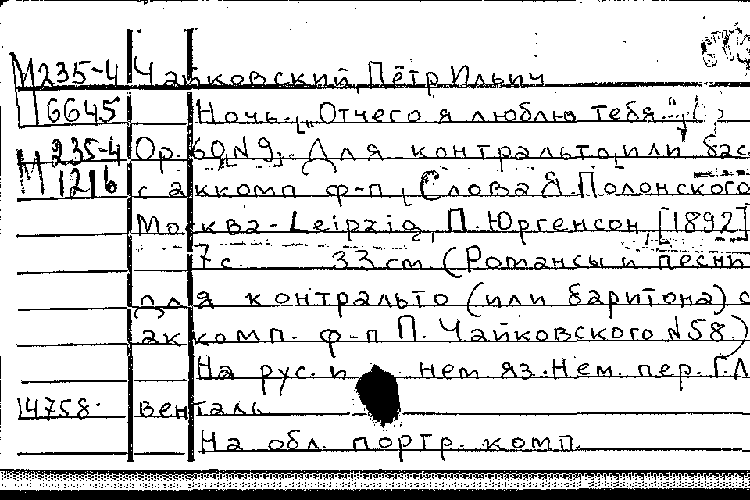 М235-4 Чайковский, Пётр Ильич
П6645 Ночь. „Отчего я люблю тебя..."
М 235-4 Ор. 60, N9. Для контральто, или бас
1216 с аккомп ф-п. Слова Я. Полонского
Москва-Leipzig, П. Юргенсон, [1892]
7с 33 cm. (Романсы и песни
для контральто (или баритона) с
аккомп. ф-п П. Чайковского N58)
На рус. и нем яз. Нем. пер. Г. Л
14758. венталь
На обл. портр. комп.